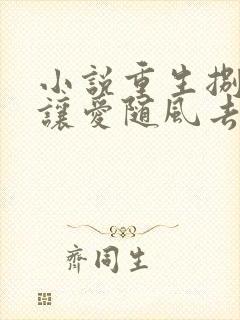 小说重生捌
讓愛随風去
齊同生